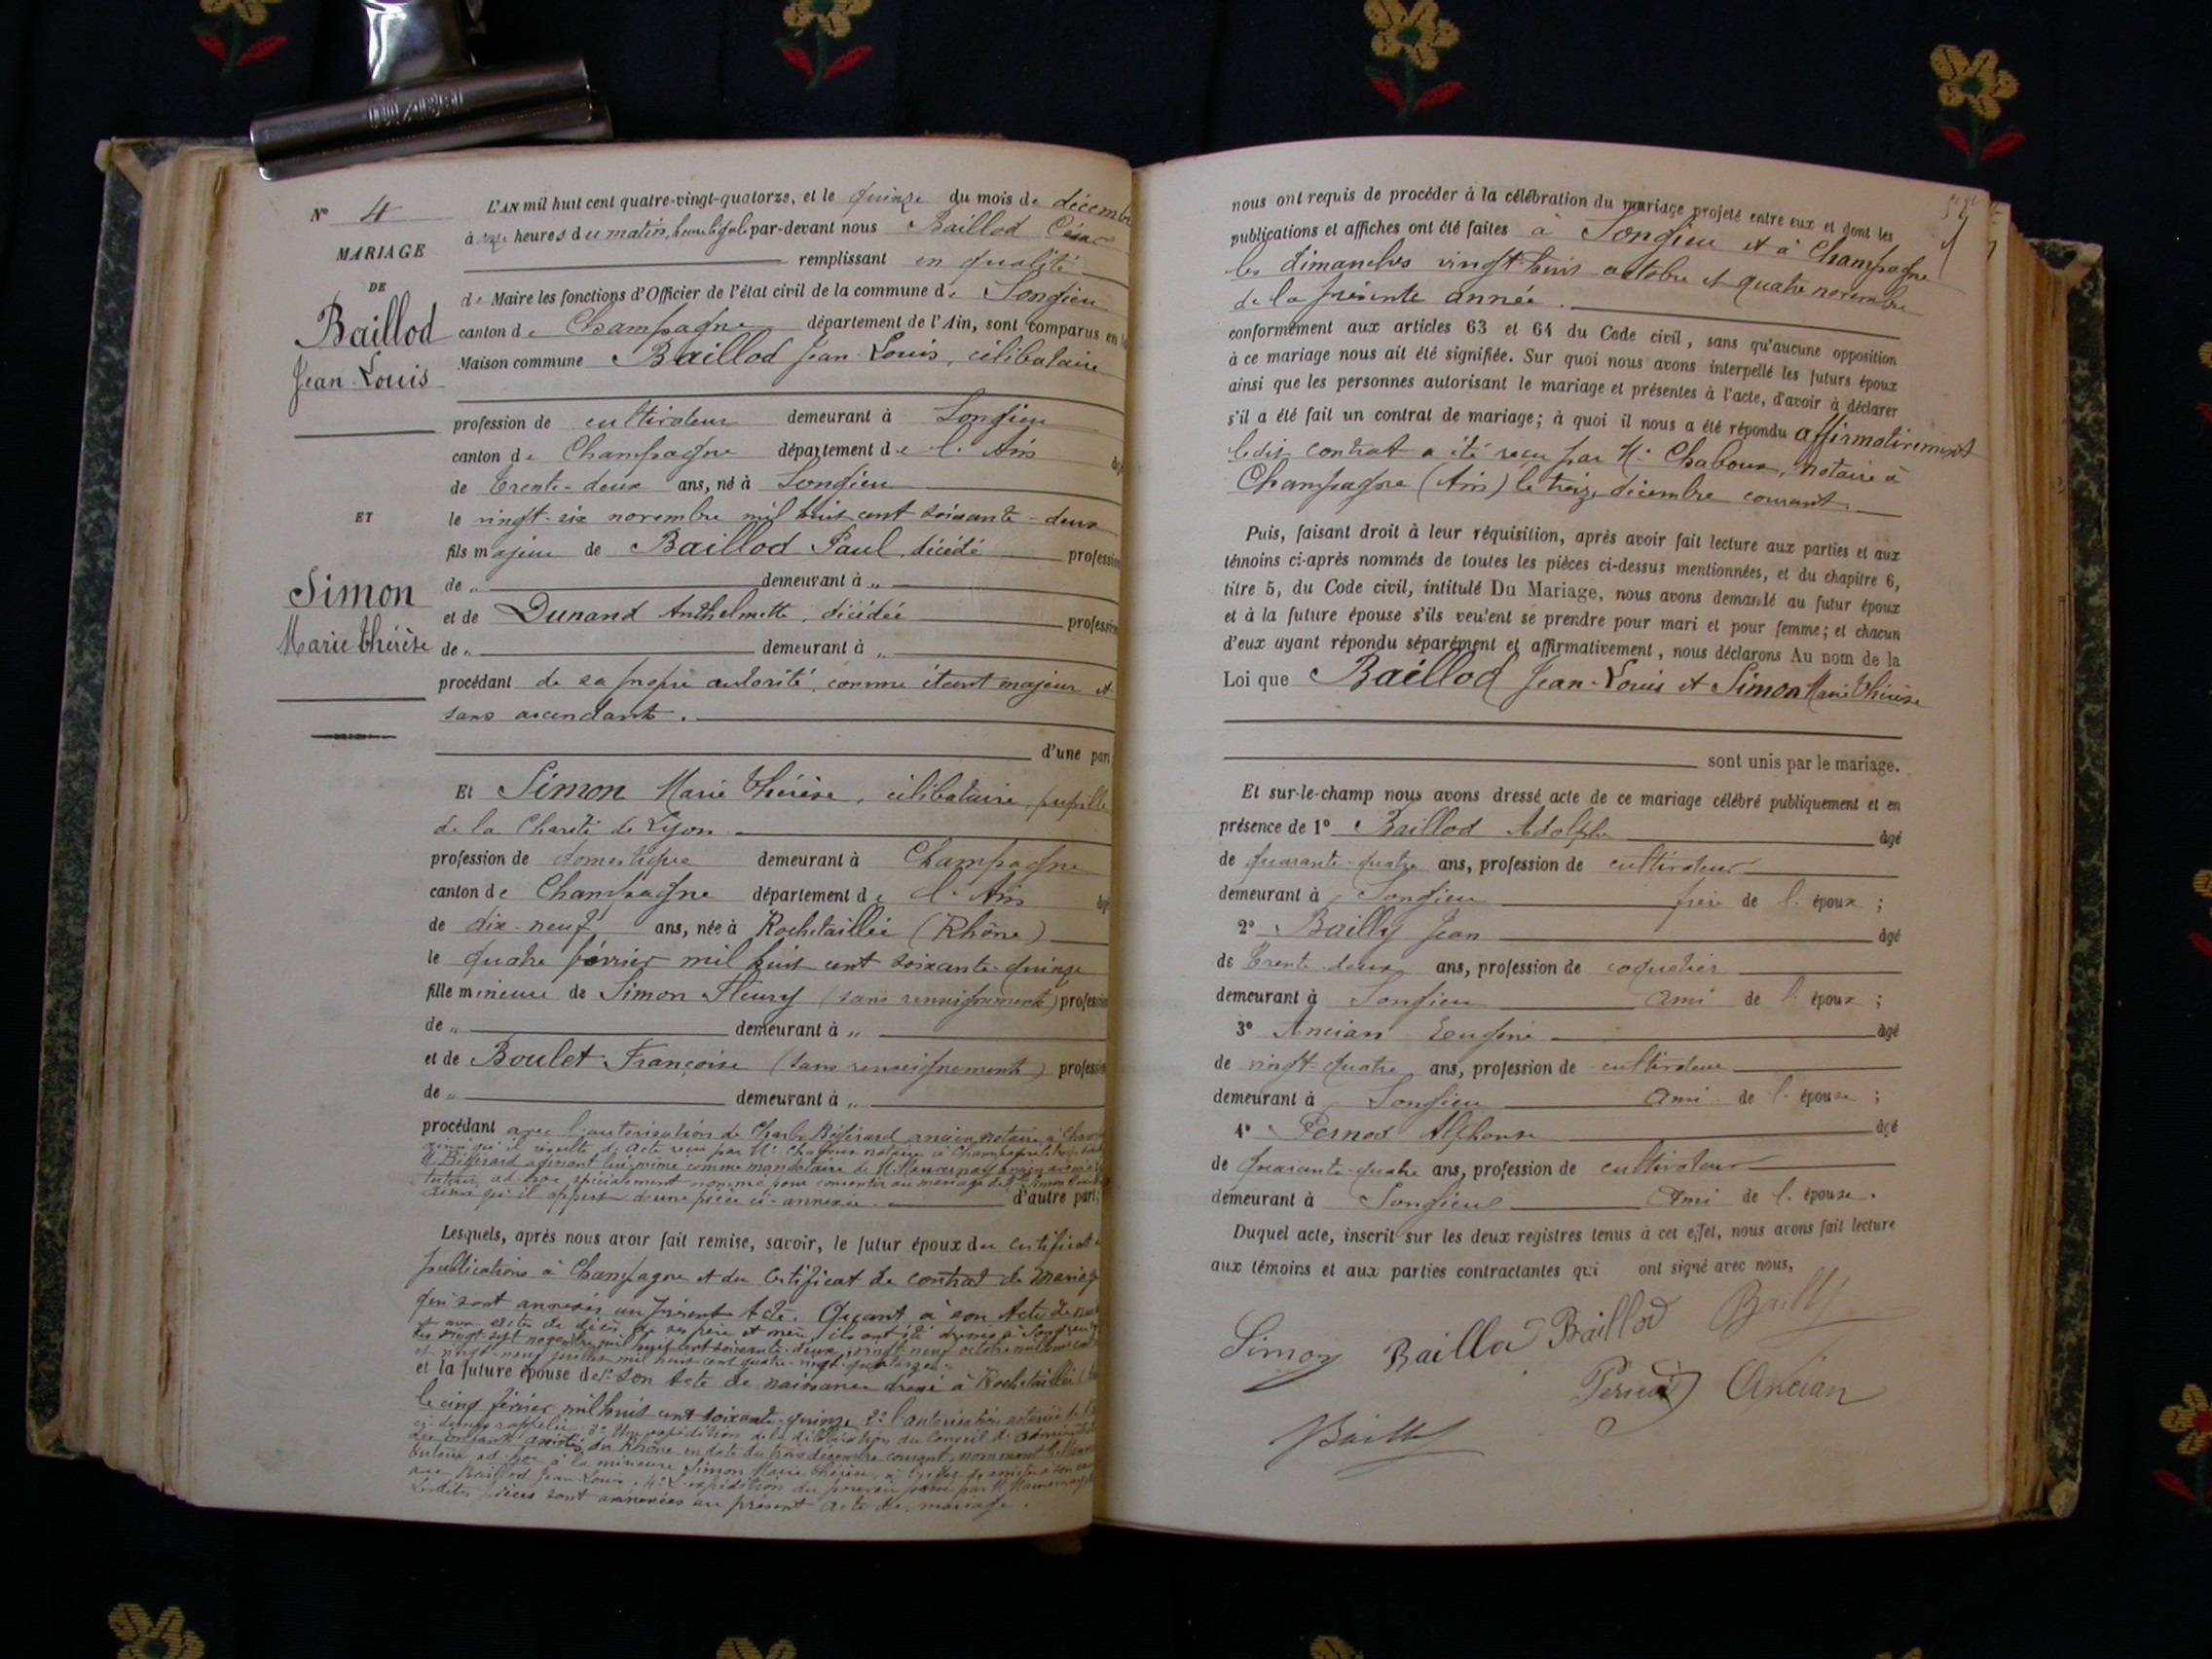 N° 4
MARIAGE
DE
Baillod
Jean-Louis
ET
Simon
Marie Thérèse
L'AN mil huit cent quatre-vingt-quatorze, et le quinze du mois de décembre
à onze heures du matin, heure légale par-devant nous Baillod César
remplissant en qualité
de Maire les fonctions d'Officier de l'état civil de la commune de Songieu
canton de Champagne département de l'Ain, sont comparus en la
Maison commune Baillod Jean-Louis, célibataire
profession de cultivateur demeurant à Songieu
canton de Champagne département de l'Ain âgé
de trente-deux ans, né à Songieu
le vingt-six novembre mil huit cent soixante-deux
fils majeur de Baillod Paul, décédé profession
de " demeurant à "
et de Dunand Anthelmette, décédée profession
de " demeurant à "
procédant de sa propre autorité, comme étant majeur et
sans ascendants.
d'une part
Et Simon Marie Thérèse, célibataire, pupille
de la Charité de Lyon
profession de domestique demeurant à Champagne
canton de Champagne département de l'Ain âgé
de dix-neuf ans, née à Rochetaillée (Rhône)
le quatre février mil huit cent soixante-quinze
fille mineure de Simon Fleury (sans renseignements) profession
de " demeurant à "
et de Boulet Françoise (sans renseignements) profession
de " demeurant à "
procédant avec l'autorisation de ancien notaire à
ainsi qu'il résulte de acte reçu par Me Chaboux notaire à Champagne
M. agissant lui-même comme mandataire de M.
tuteur ad-hoc spécialement nommé pour consentir au mariage de Simon
ainsi qu'il appert d'une pièce ci-annexée. d'autre part;
Lesquels, après nous avoir fait remise, savoir, le futur époux du certificat de
publications à Champagne et du Certificat de contrat de Mariage
qui sont annexés au présent Acte. Quant à son Acte de
et aux actes de décès de ses père et mère, ils ont été dressés à Songieu
les vingt-sept novembre mil huit cent soixante-deux, vingt-neuf octobre mil huit cent
et vingt-neuf juillet mil huit cent quatre-vingt-quatorze.
et la future épouse de 1° Son Acte de naissance dressé à Rochetaillée
le cinq février mil huit cent soixante-quinze 2° l'autorisation notariée
ci-dessus rappelée; 3° Une expédition de la délibération du Conseil d'
des enfants assistés du Rhône en date du trois décembre courant, nommant M.
tuteur ad-hoc à la mineure Simon Marie Thérèse, à l'effet de
avec Baillod Jean-Louis. 4° L'expédition du pouvoir passé par M.
Lesdites pièces sont annexées au présent acte de mariage.
nous ont requis de procéder à la célébration du mariage projeté entre eux et dont les
publications et affiches ont été faites à Songieu et à Champagne
les dimanches vingt-huit octobre et quatre novembre
de la présente année.
conformément aux articles 63 et 64 du Code civil, sans qu'aucune opposition
à ce mariage nous ait été signifiée. Sur quoi nous avons interpellé les futurs époux
ainsi que les personnes autorisant le mariage et présentes à l'acte, d'avoir à déclarer
s'il a été fait un contrat de mariage; à quoi il nous a été répondu affirmativement
ledit contrat a été reçu par Me Chaboux, notaire à
Champagne (Ain) le treize décembre courant.
Puis, faisant droit à leur réquisition, après avoir fait lecture aux parties et aux
témoins ci-après nommés de toutes les pièces ci-dessus mentionnées, et du chapitre 6,
titre 5, du Code civil, intitulé Du Mariage, nous avons demandé au futur époux
et à la future épouse s'ils veulent se prendre pour mari et pour femme; et chacun
d'eux ayant répondu séparément et affirmativement, nous déclarons Au nom de la
Loi que Baillod Jean-Louis et Simon Marie Thérèse
sont unis par le mariage.
Et sur-le-champ nous avons dressé acte de ce mariage célébré publiquement et en
présence de 1° Baillod Adolphe âgé
de quarante-quatre ans, profession de cultivateur
demeurant à Songieu frère de l'époux;
2° Bailly Jean âgé
de trente-deux ans, profession de coquetier
demeurant à Songieu ami de l'époux;
3° Ancian Eugène âgé
de vingt-quatre ans, profession de cultivateur
demeurant à Songieu ami de l'épouse;
4° Pernod Alphonse âgé
de quarante-quatre ans, profession de cultivateur
demeurant à Songieu ami de l'épouse.
Duquel acte, inscrit sur les deux registres tenus à cet effet, nous avons fait lecture
aux témoins et aux parties contractantes qui ont signé avec nous.
Simon Baillod Baillod Bailly
Pernod Ancian